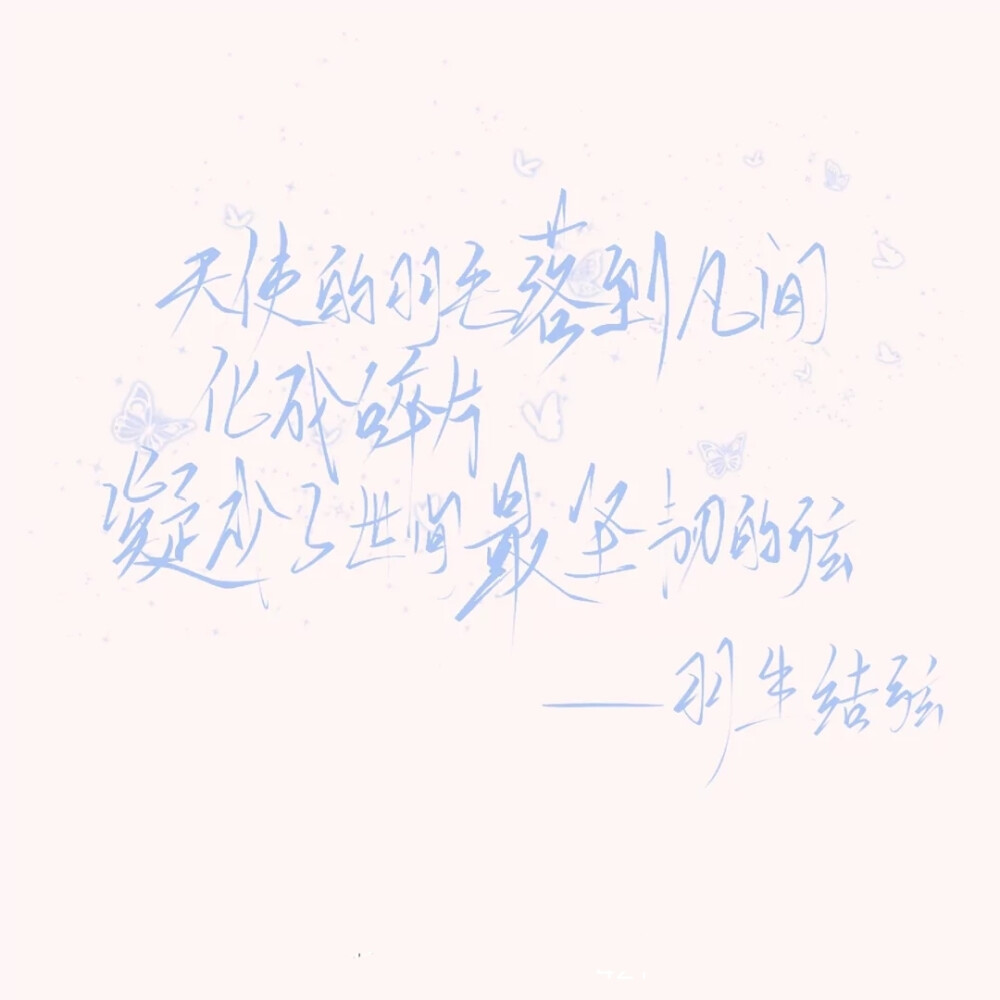 天使的羽毛落到凡间
化成碎片
凝成了世间最坚韧的弦
——羽生结弦